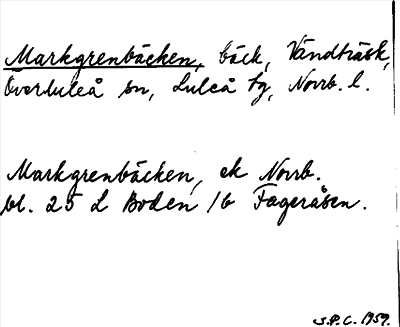 Markgrenbäcken, bäck, Vändträsk,
Överluleå sn, Luleå tg, Norrb. l.
Markgrenbäcken, ek Norrb.
bl. 25 L Boden 1b Fageråsen.
S.P.C. 1959.